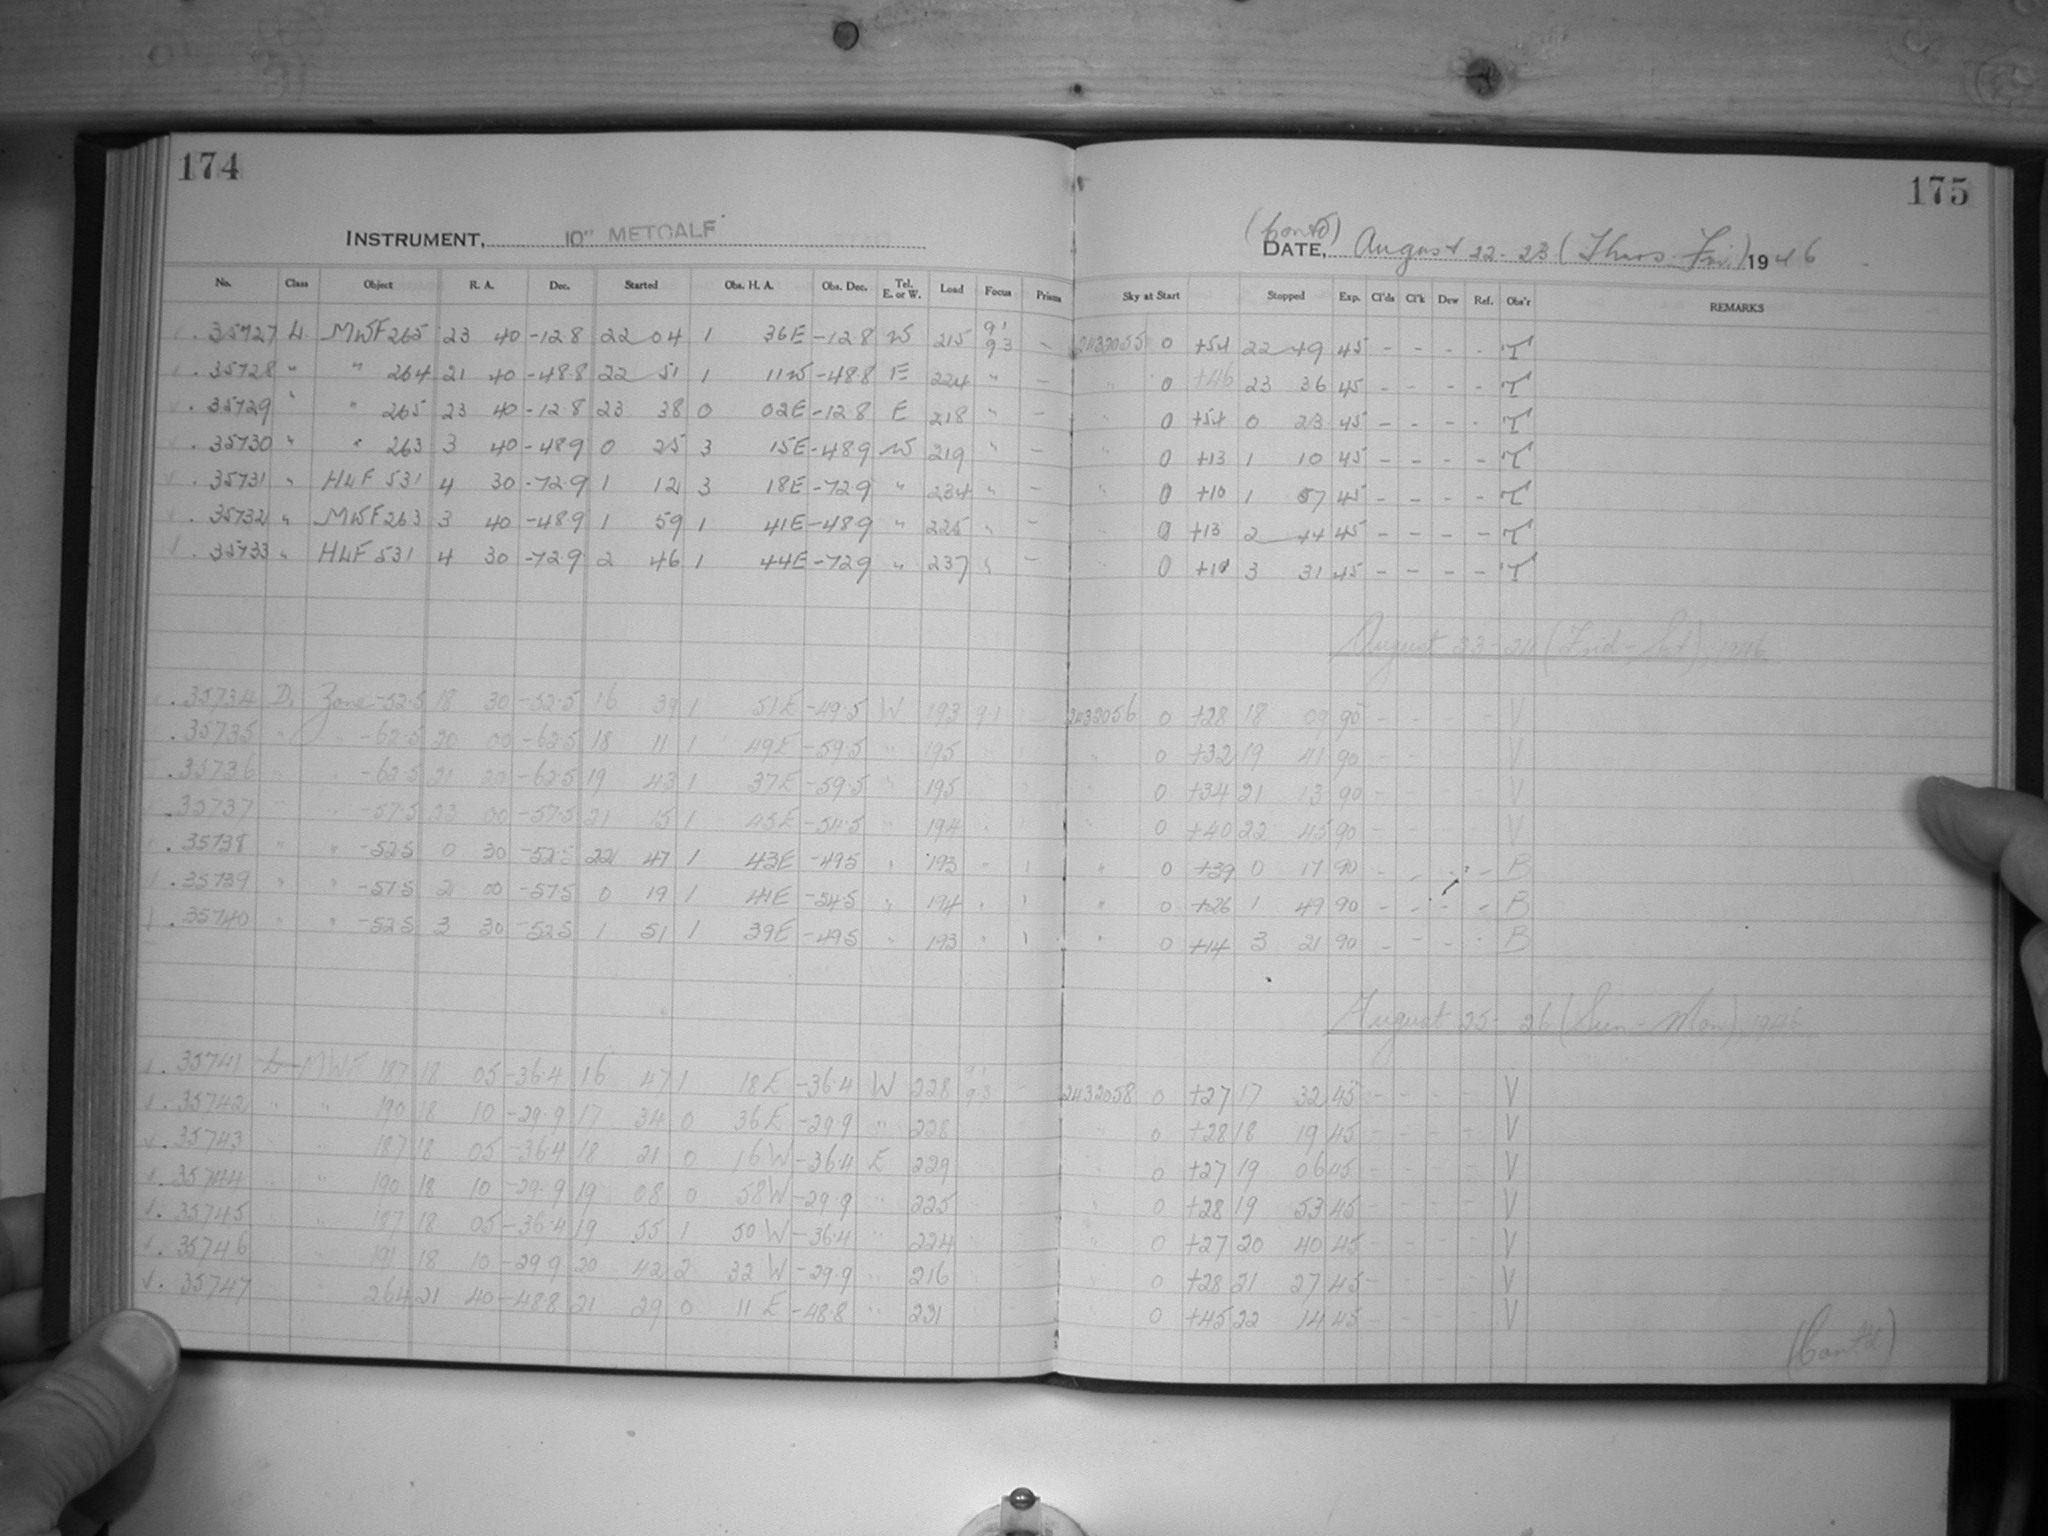 174
INSTRUMENT, 10" METCALF
No. Class Object R. A. Dec. Started Obs. H. A. Obs. Dec. Tel. E. or W. Load Focus Prisms
35727 L MWF 265 23 40 -12.8 22 04 1 36E -12.8 W 215 9.1 9.3 -
35728 " " 264 21 40 -48.8 22 51 1 11W -48.8 E 224 " -
35729 " " 265 23 40 -12.8 23 38 0 02E -12.8 E 218 " -
35730 " " 263 3 40 -48.9 0 25 3 15E -48.9 W 219 " -
35731 " HLF 531 4 30 -72.9 1 12 3 18E -72.9 " 234 " -
35732 " MWF 263 3 40 -48.9 1 59 1 41E -48.9 " 225 " -
35733 " HLF 531 4 30 -72.9 2 46 1 44E -72.9 " 237 " -
35734 D. Zone -52.5 18 30 -52.5 16 39 1 51E -49.5 W 193 9.1
35735 " " -62.5 20 00 -62.5 18 11 1 49E -59.5 " 195
35736 " " -62.5 21 20 -62.5 19 43 1 37E -59.5 " 195
35737 " " -57.5 23 00 -57.5 21 15 1 45E -54.5 " 194
35738 " " -52.5 0 30 -52.5 22 47 1 43E -49.5 " 193 "
35739 " " -57.5 2 00 -57.5 0 19 1 41E -54.5 " 194 "
35740 " " -52.5 3 30 -52.5 1 51 1 39E -49.5 " 193 "
35741 L MWF 187 18 05 -36.4 16 47 1 18E -36.4 W 228 9.1 9.3
35742 " " 190 18 10 -29.9 17 34 0 36E -29.9 " 228
35743 " " 187 18 05 -36.4 18 21 0 16W -36.4 E 229
35744 " " 190 18 10 -29.9 19 08 0 58W -29.9 " 225
35745 " " 187 18 05 -36.4 19 55 1 50W -36.4 " 224
35746 " 191 18 10 -29.9 20 42 2 32W -29.9 " 216
35747 264 21 40 -48.8 21 29 0 11E -48.8 " 231
175
(Cont'd)
DATE, August 22-23 (Thurs-Fri) 1946
Sky at Start Stopped Exp. Cl'ds Cl'k Dew Ref. Obs'r REMARKS
2432055 0 +54 22 49 45 - - - - T
" 0 +46 23 36 45 - - - - T
" 0 +54 0 23 45 - - - - T
" 0 +13 1 10 45 - - - - T
" 0 +10 1 57 45 - - - - T
" 0 +13 2 44 45 - - - - T
" 0 +10 3 31 45 - - - - T
August 23-24 (Frid-Sat), 1946
2432056 0 +28 18 09 90 - - - - V
" 0 +32 19 41 90 - - - - V
" 0 +34 21 13 90 - - - - V
" 0 +40 22 45 90 - - - - V
" 0 +39 0 17 90 - - - - B
" 0 +26 1 49 90 - - - - B
" 0 +14 3 21 90 - - - - B
August 25-26 (Sun-Mon), 1946
2432058 0 +27 17 32 45 - - - - V
" 0 +28 18 19 45 - - - - V
" 0 +27 19 06 45 - - - - V
" 0 +28 19 53 45 - - - - V
" 0 +27 20 40 45 - - - - V
" 0 +28 21 27 45 - - - - V
" 0 +45 22 14 45 - - - - V
(Cont'd)